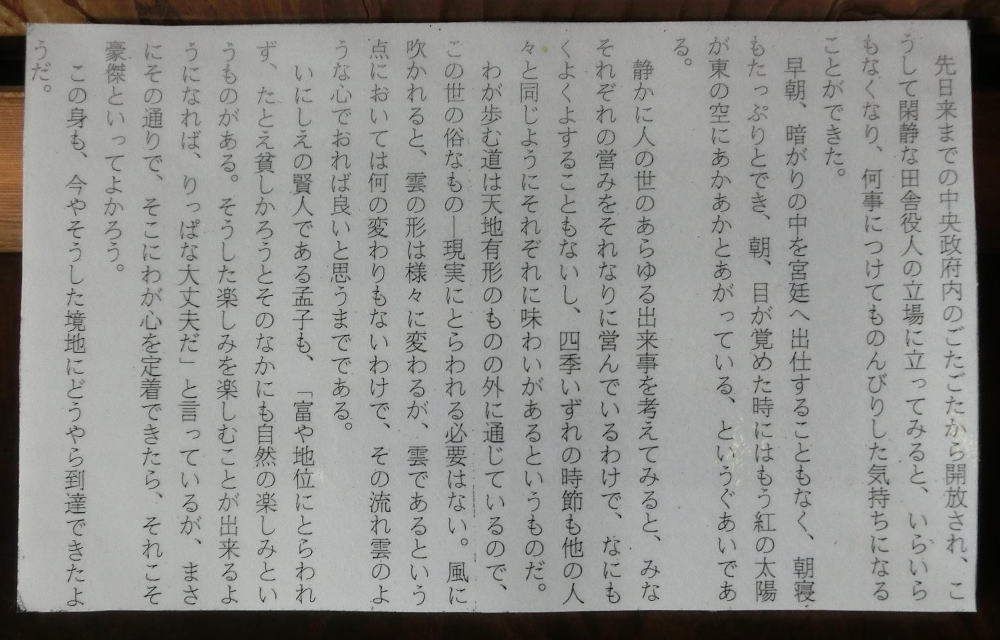 先日来までの中央政府内のごたごたから開放され、こ
うして閑静な田舎役人の立場に立ってみると、いらいら
もなくなり、何事につけてものんびりした気持ちになる
ことができた。
早朝、暗がりの中を宮廷へ出仕することもなく、朝寝
もたっぷりとでき、朝、目が覚めた時にはもう紅の太陽
が東の空にあかあかとあがっている、というぐあいであ
る。
静かに人の世のあらゆる出来事を考えてみると、みな
それぞれの営みをそれなりに営んでいるわけで、なにも
くよくよすることもないし、四季いずれの時節も他の人
々と同じようにそれぞれに味わいがあるというものだ。
わが歩む道は天地有形のものの外に通じているので、
この世の俗なもの―現実にとらわれる必要はない。風に
吹かれると、雲の形は様々に変わるが、雲であるという
点においては何の変わりもないわけで、その流れ雲のよ
うな心でおれば良いと思うまでである。
いにしえの賢人である孟子も、「富や地位にとらわれ
ず、たとえ貧しかろうとそのなかにも自然の楽しみとい
うものがある。そうした楽しみを楽しむことが出来るよ
うになれば、りっぱな大丈夫だ」と言っているが、まさ
にその通りで、そこにわが心を定着できたら、それこそ
豪傑といってよかろう。
この身も、今やそうした境地にどうやら到達できたよ
うだ。